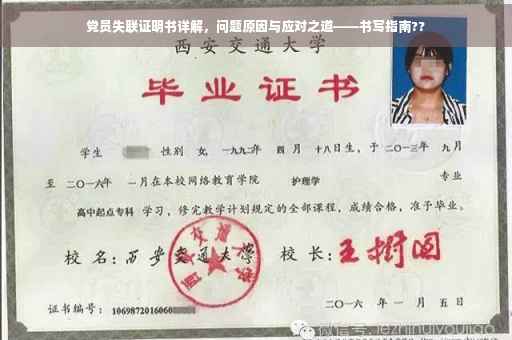 党员失联证明书详解，问题原因与应对之道——书写指南??
西安交通大学
毕业证书
学生 性别 女，一九九二年 四 月 十八日生，于 二〇一三年 九月
至 二〇一六年 一月在本校网络教育学院 护理学 专业
高中起点专科 学习，修完教学计划规定的全部课程，成绩合格，准予毕业。
校 名：西安交通大学 校 长：王树国
西安交通大学
证书编号：1069872016060
二〇一六 年 一 月 五 日
微信号: jezhinuiyoujiao